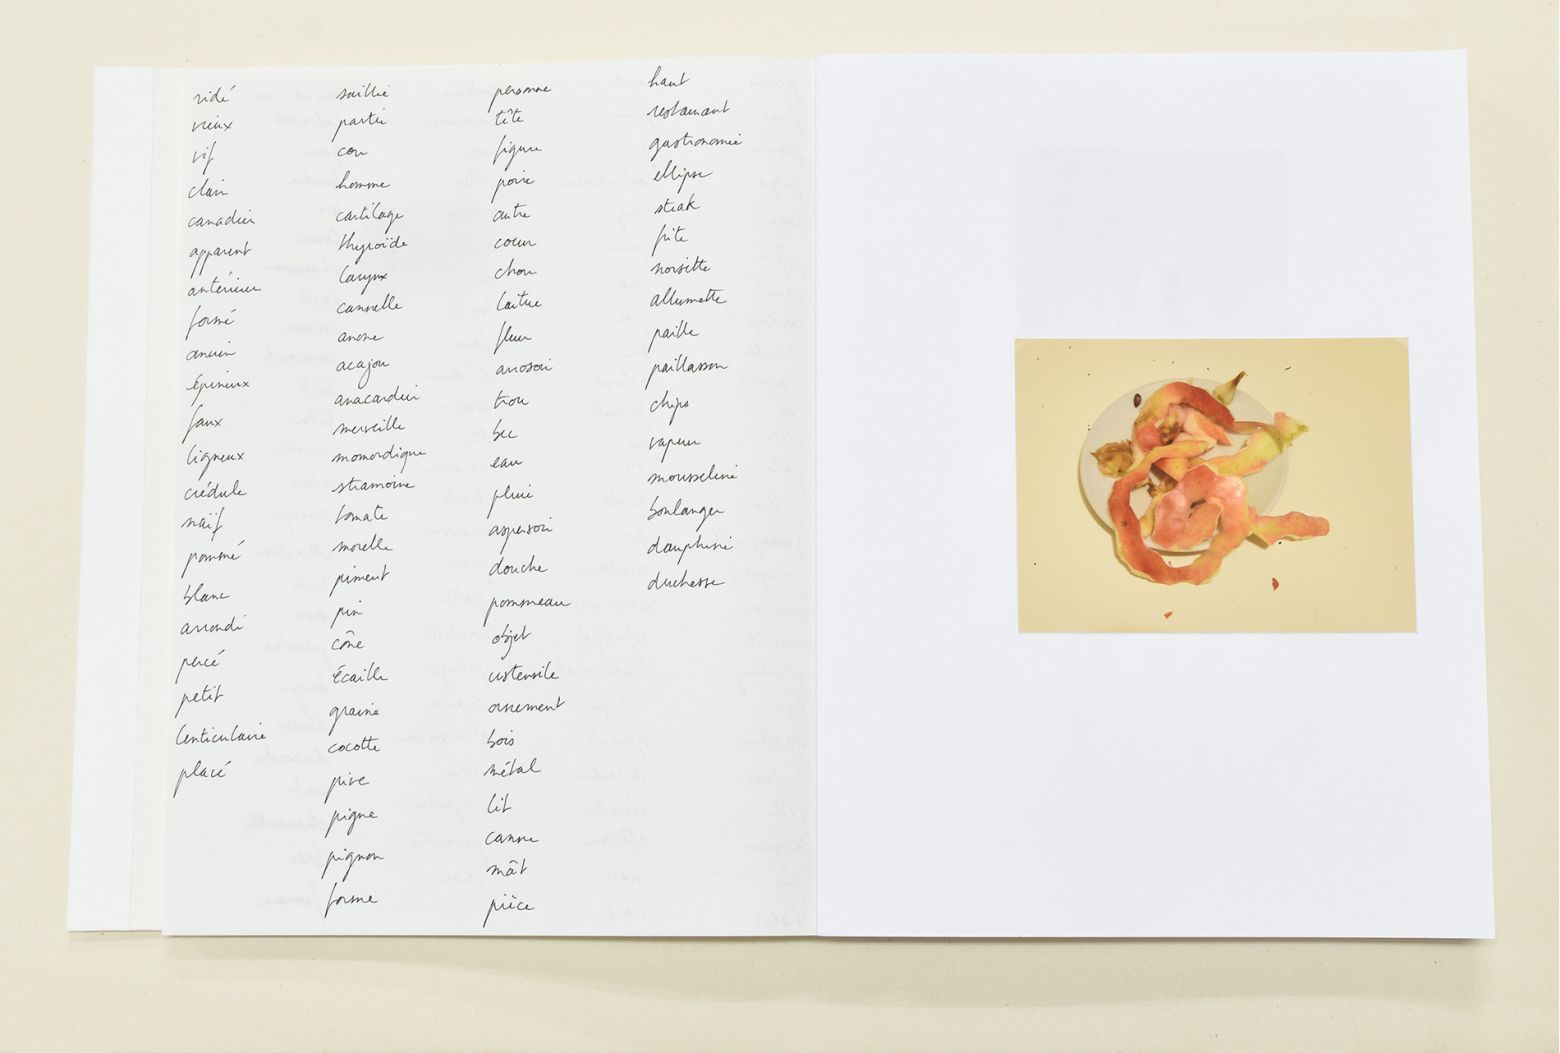 ridé
vieux
vif
clair
canadien
apparent
antérieur
formé
ancien
épineux
faux
ligneux
crédule
naïf
pommé
blanc
arrondi
percé
petit
lenticulaire
placé
saillie
partie
cou
homme
cartilage
thyroïde
larynx
cannelle
anone
acajou
anacardier
merveille
momordique
stramoine
tomate
morelle
piment
pin
cône
écaille
graine
cocotte
pive
pigne
pignon
forme
personne
tête
figure
poire
autre
cœur
chou
laitue
fleur
arrosoir
trou
bec
eau
pluie
aspersoir
douche
pommeau
objet
ustensile
ornement
bois
métal
lit
canne
mât
pièce
haut
restaurant
gastronomie
ellipse
steak
frite
noisette
allumette
paille
paillasson
chips
vapeur
mousseline
boulanger
dauphine
duchesse